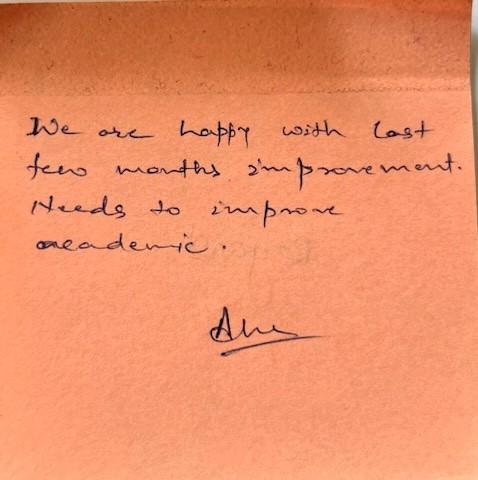 We are happy with last
few months improvement.
Needs to improve
academic.